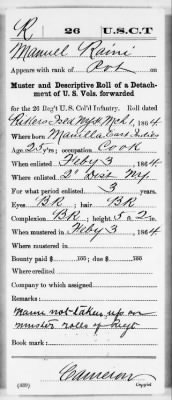 R 26 U.S.C.T
Manuel Raini
Appears with rank of Pvt on
Muster and Descriptive Roll of a Detach-
ment of U. S. Vols. forwarded
for the 26 Reg't U.S. Col'd Infantry. Roll dated
Rikers Isld NYH Mch 1, 1864
Where born Manilla East Indies
Age 25 y'rs; occupation Cook
When enlisted Feby 3, 1864
Where enlisted 2" Dist NY.
For what period enlisted 3 years.
Eyes BR; hair BR
Complexion BR; height 5 ft. 2 in.
When mustered in Feby 3, 1864
Where mustered in
Bounty paid $ 100; due $ 100
Where credited
Company to which assigned
Remarks:
Name not taken up on
muster rolls of Regt
Book mark:
Cameron
(339) Copyist.